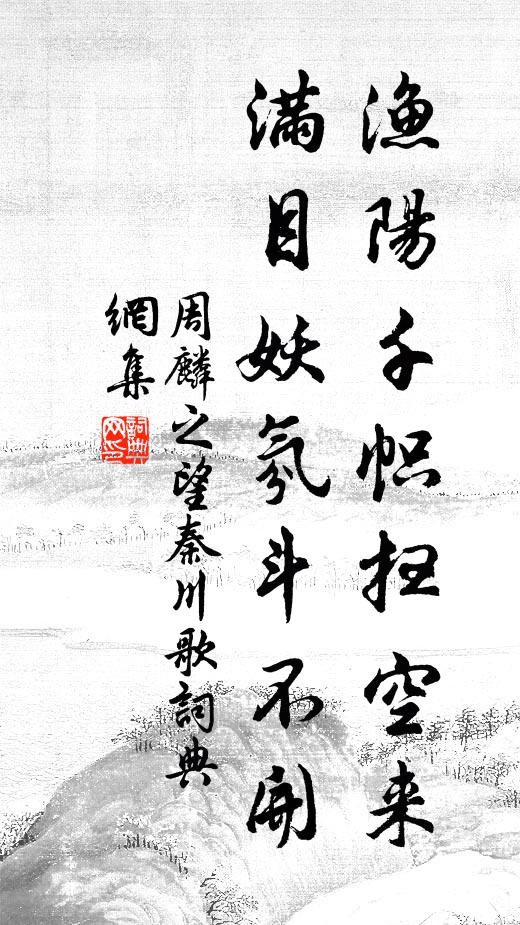 漁陽千帜扫空来
满目妖氛斗不開
周麟之望秦川歌詞典
網集
詞典
网印